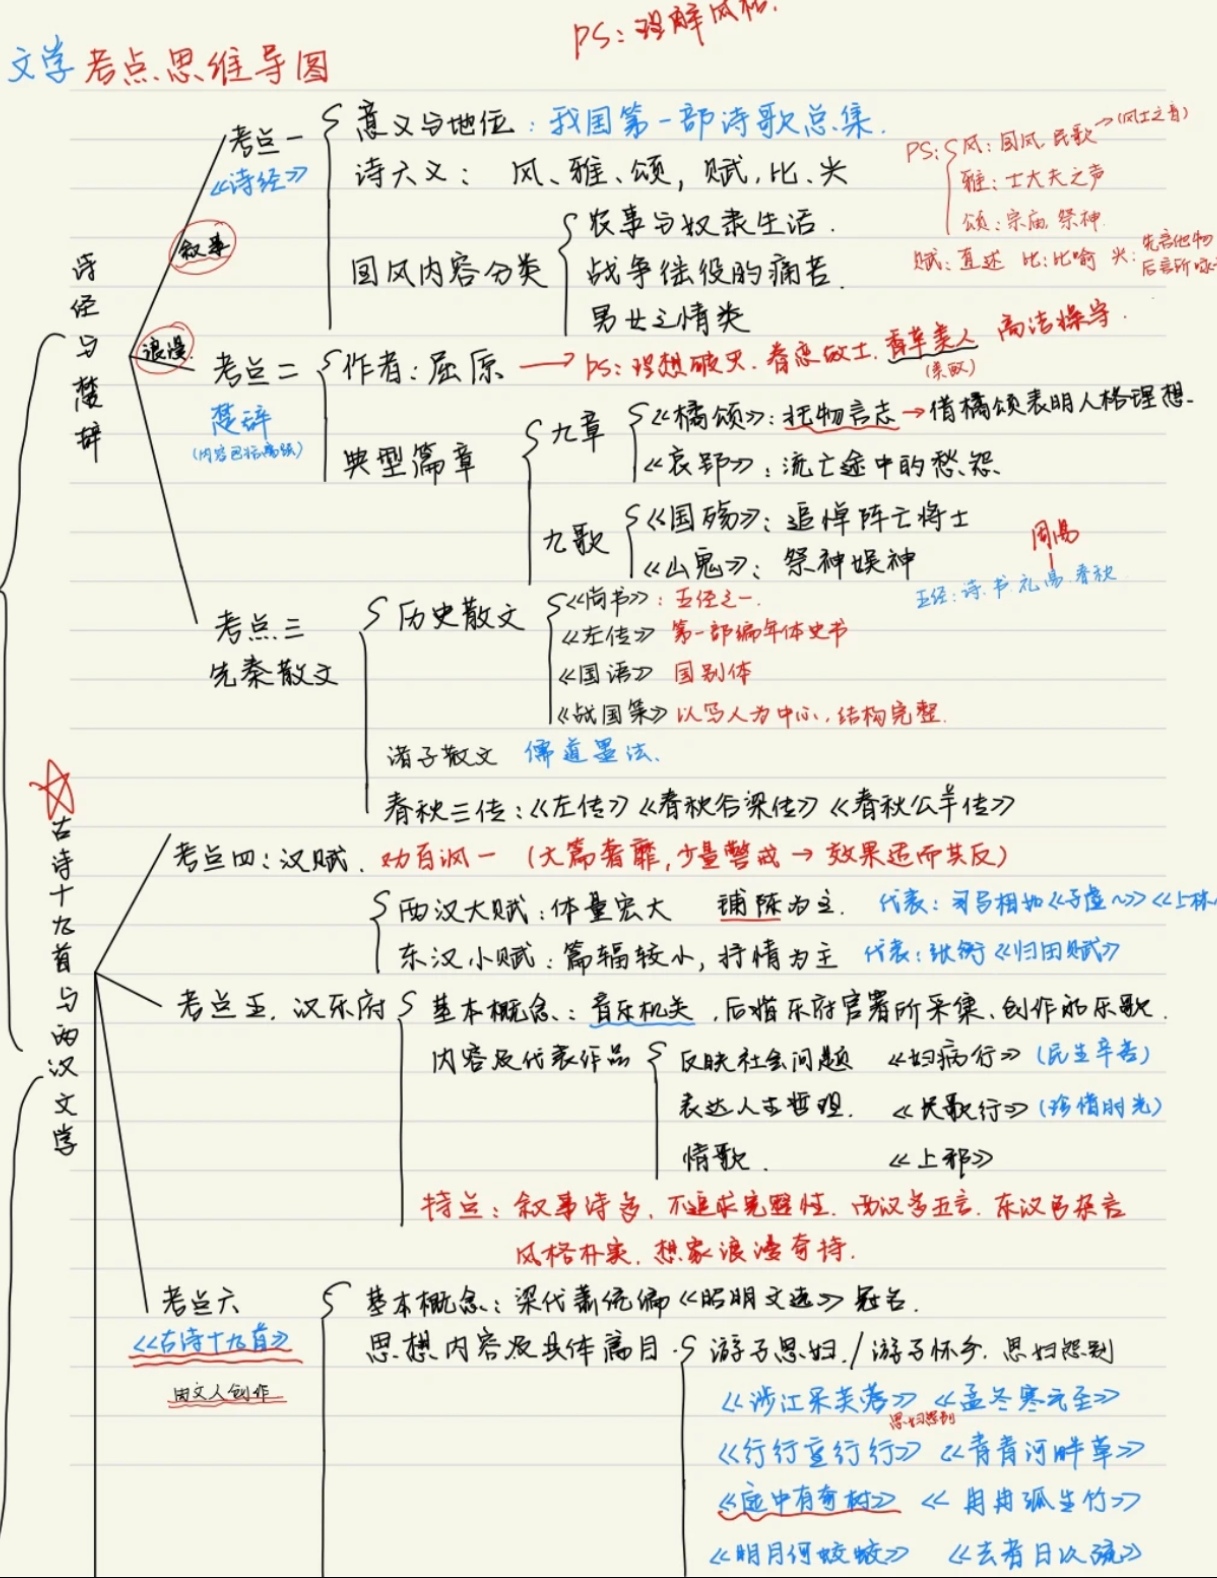 PS：理解风格.
文学 考点思维导图
诗经与楚辞
考点一
《诗经》
叙事
意义与地位：我国第一部诗歌总集.
诗六义： 风、雅、颂，赋，比、兴
PS：风：国风，民歌→(风土之音)
雅：士大夫之声
颂：宗庙 祭神
赋：直述 比：比喻 兴：先言他物
后言所咏
国风内容分类
农事与奴隶生活.
战争徭役的痛苦.
男女之情类
浪漫.
考点二
楚辞
作者：屈原 → PS：理想破灭. 眷恋故土. 香草美人 高洁操守.
典型篇章
九章
《橘颂》：托物言志→借橘颂表明人格理想.
《哀郢》：流亡途中的愁怨
九歌
《国殇》：追悼阵亡将士
《山鬼》：祭神娱神
周易
五经：诗.书.礼.易.春秋
考点三
先秦散文
历史散文
《尚书》：五经之一.
《左传》 第一部编年体史书
《国语》 国别体
《战国策》 以写人为中心，结构完整.
诸子散文 儒道墨法.
春秋三传：《左传》《春秋谷梁传》《春秋公羊传》
古诗十九首与两汉文学
考点四：汉赋. 劝百讽一 (大篇奢靡，少量警戒→效果适而其反)
西汉大赋：体量宏大 铺陈为主. 代表：司马相如《子虚~》《上林
东汉小赋：篇辐较小，抒情为主 代表：张衡《归田赋》
考点五. 汉乐府
基本概念：音乐机关，后指乐府官署所采集、创作的乐歌.
内容及代表作品
反映社会问题 《妇病行》(民生辛苦)
表达人生哲理. 《长歌行》(珍惜时光)
情歌. 《上邪》
特点：叙事诗多，不追求完整性. 西汉多五言. 东汉多杂言
风格朴实，想象浪漫奇特.
考点六
《古诗十九首》
由文人创作
基本概念：梁代萧统编《昭明文选》冠名.
思想内容及具体篇目.
游子思妇./游子怀乡. 思妇怨别
《涉江采芙蓉》《孟冬寒气至》
思妇怨别
《行行重行行》《青青河畔草》
《庭中有奇树》《冉冉孤生竹》
《明月何皎皎》 《去者日以疏》